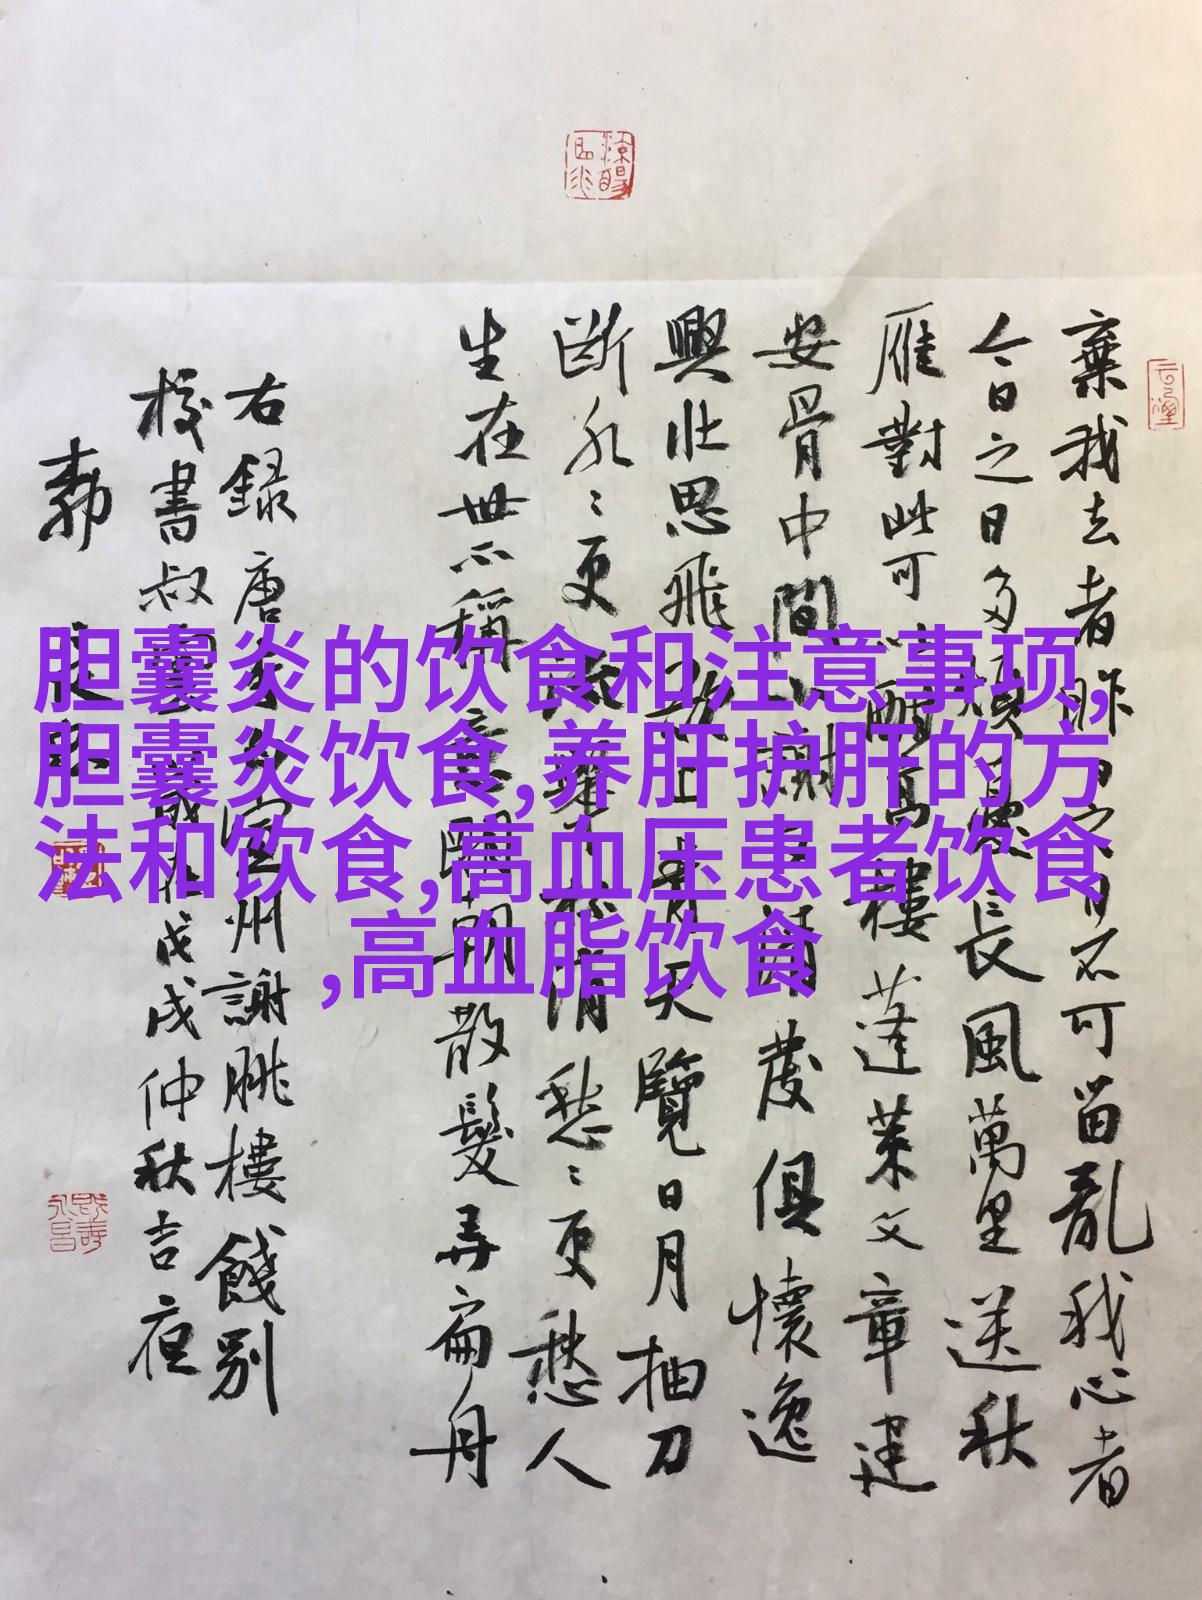 胆囊炎的饮食和注意事项,
胆囊炎饮食,养肝护肝的方
法和饮食,高血压患者饮食
,高血脂饮食
棄我去者昨日之日不可留亂我心者
今日之日多煩憂長風萬里送秋
雁對此可以酣高樓蓬萊文章建
安骨中間小謝又清發俱懷逸
興壯思飛欲上青天覽日月抽刀
斷水〻更流舉杯消愁〻更愁人
生在世不稱意明朝散髮弄扁舟
右録唐李白宣州謝朓樓餞別
校書叔雲歲在戊戌仲秋吉夜